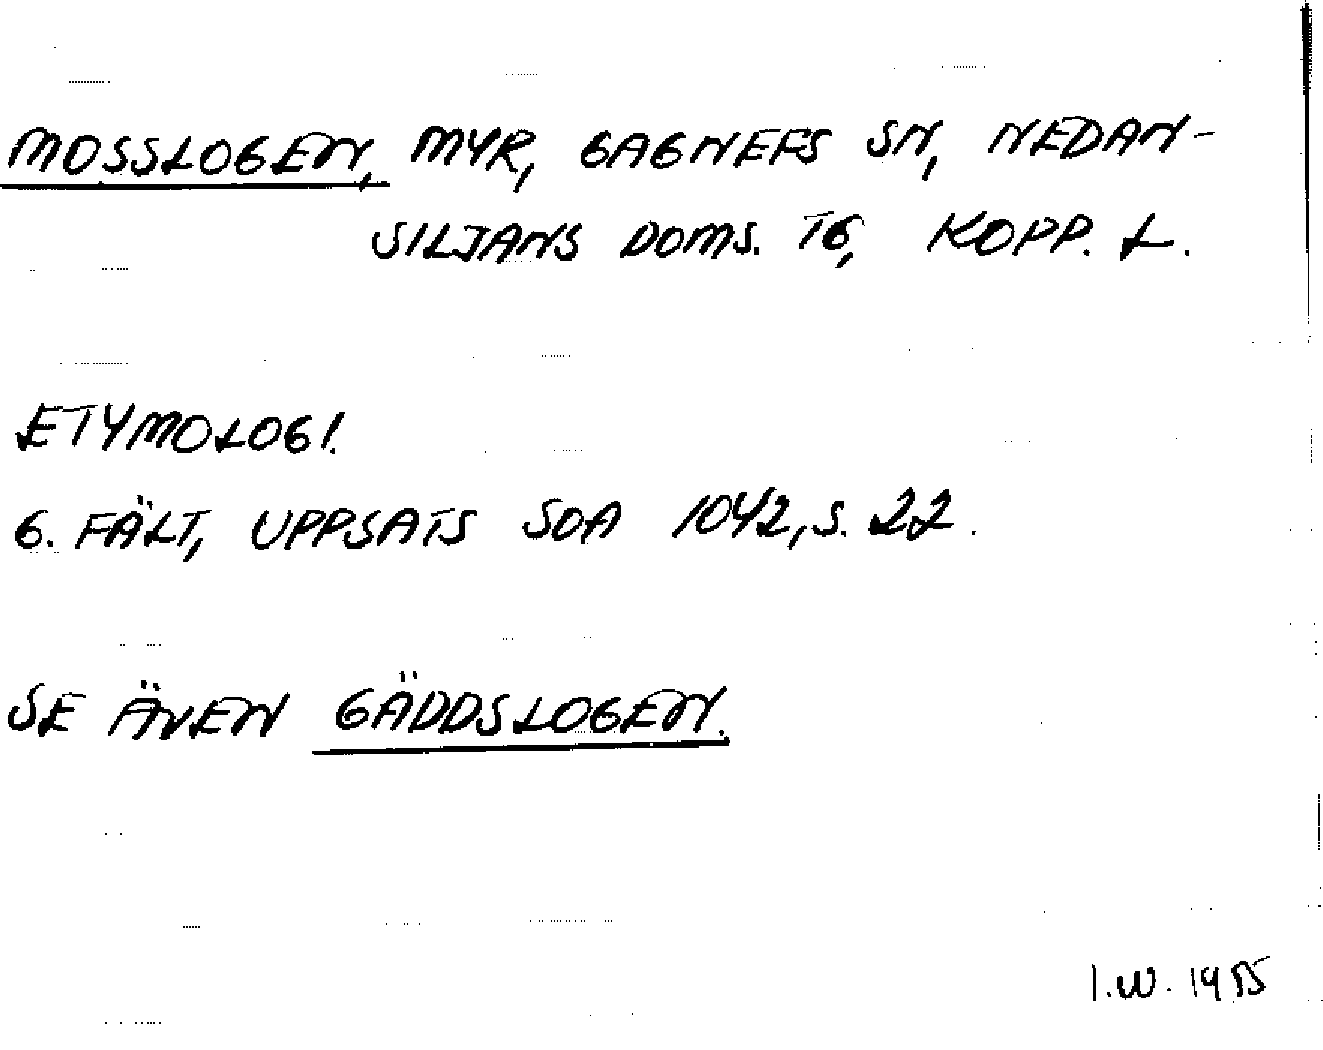 MOSSLOGEN, MYR, GAGNEFS SN, NEDAN-
SILJANS DOMS. TG, KOPP. L.
ETYMOLOGI.
G. FÄLT, UPPSATS SOA 1042, S. 22.
SE ÄVEN GÄDDSLOGEN.
I.W.